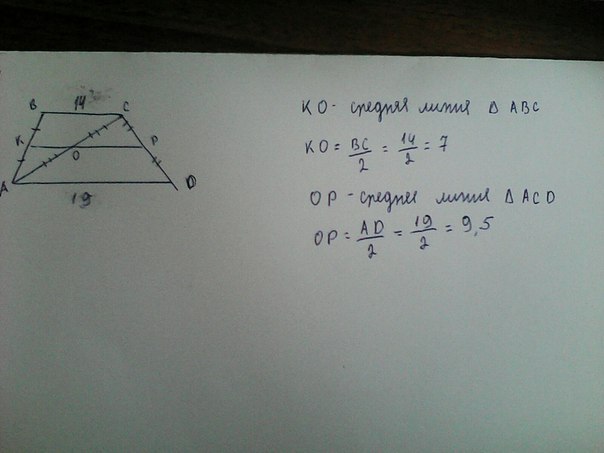 B 14 C
K O P
A D
19
KO - средняя линия Δ ABC
KO = BC/2 = 14/2 = 7
OP - средняя линия Δ ACD
OP = AD/2 = 19/2 = 9,5